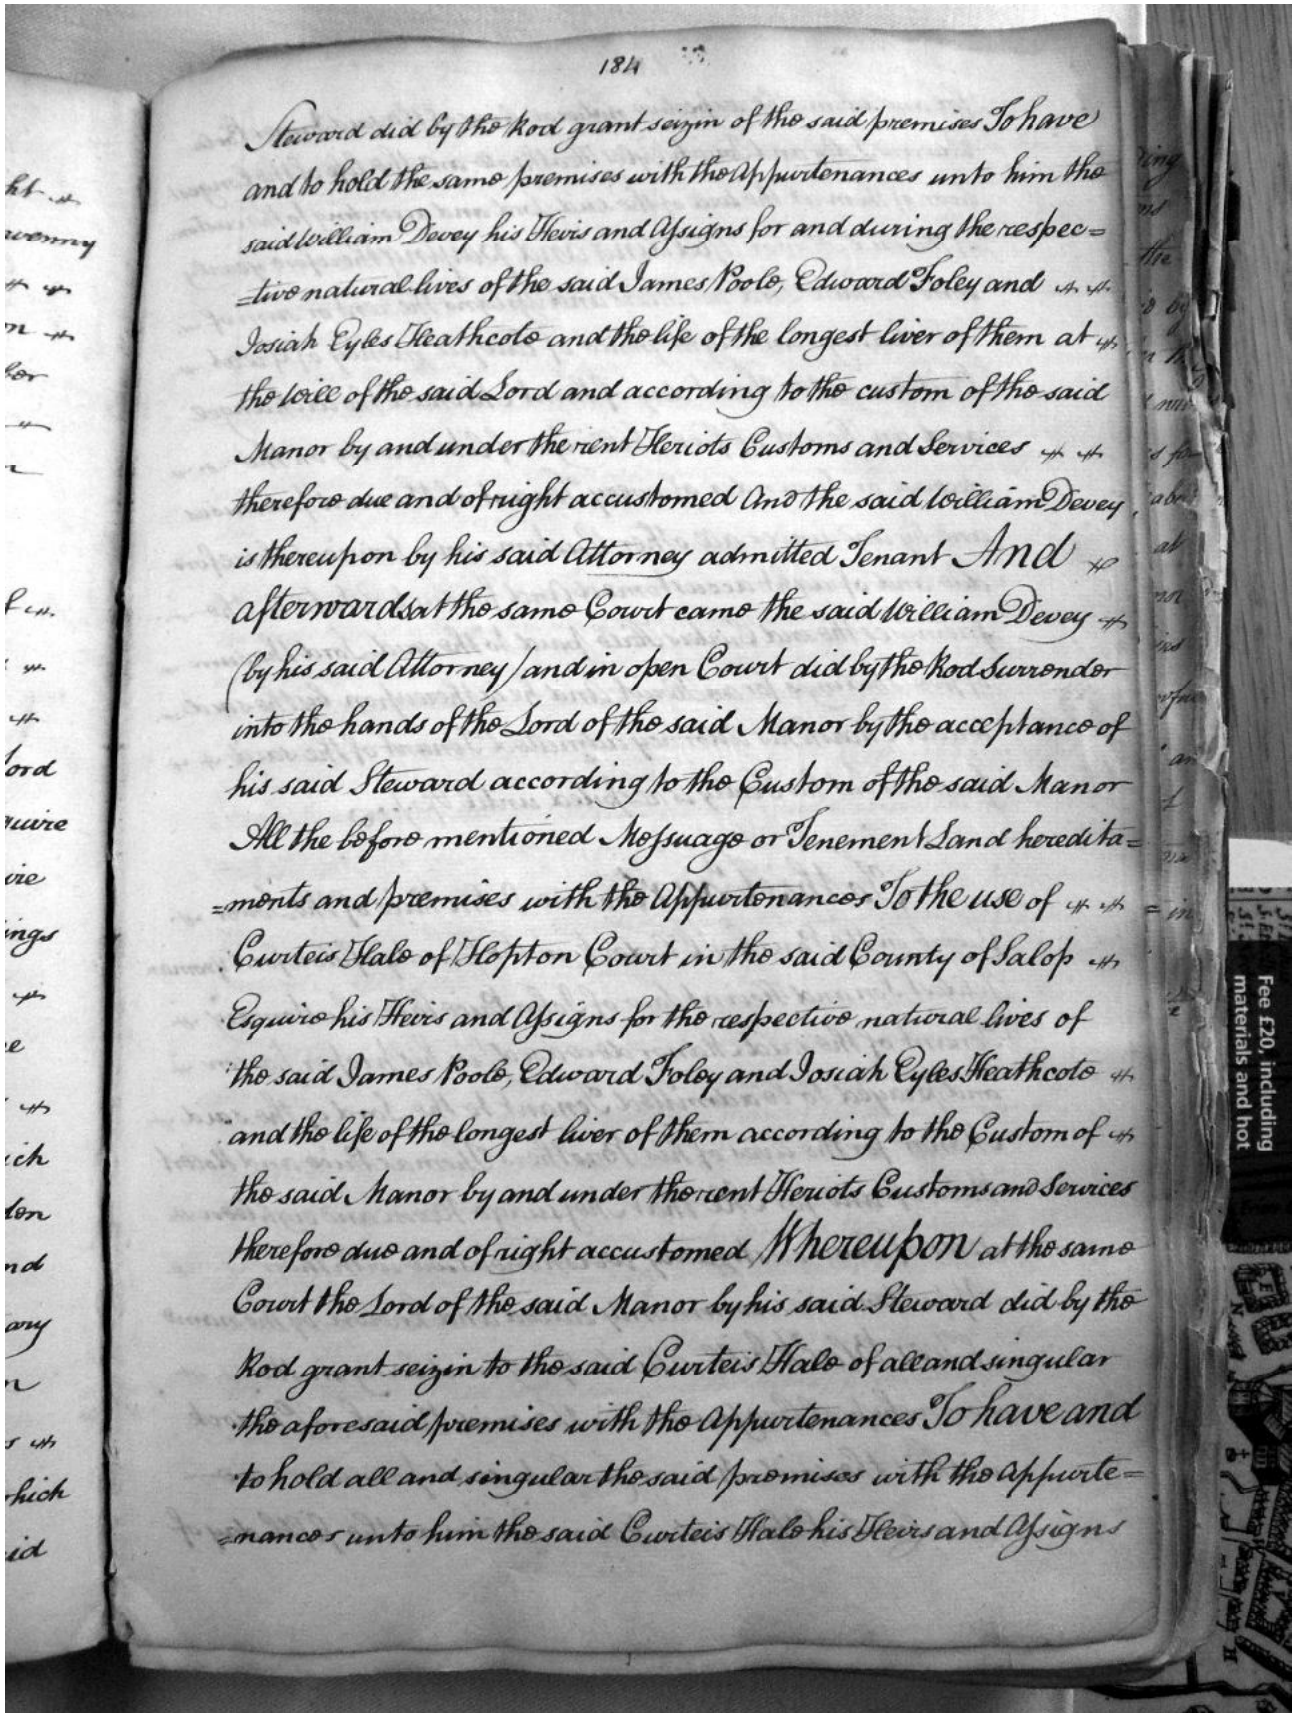 184
Steward did by the Rod grant seizin of the said premises To have
and to hold the same premises with the Appurtenances unto him the
said William Devey his Heirs and Assigns for and during the respec=
=tive natural lives of the said James Poole, Edward Foley and
Josiah Eyles Heathcote and the life of the longest liver of them at
the Will of the said Lord and according to the custom of the said
Manor by and under the rent Heriots Customs and Services
therefore due and of right accustomed And the said William Devey
is thereupon by his said Attorney admitted Tenant And
afterwards at the same Court came the said William Devey
(by his said Attorney) and in open Court did by the Rod Surrender
into the hands of the Lord of the said Manor by the acceptance of
his said Steward according to the Custom of the said Manor
All the before mentioned Messuage or Tenement Land heredita=
=ments and premises with the Appurtenances To the use of
Curteis Hale of Hopton Court in the said County of Salop
Esquire his Heirs and Assigns for the respective natural lives of
the said James Poole, Edward Foley and Josiah Eyles Heathcote
and the life of the longest liver of them according to the Custom of
the said Manor by and under the rent Heriots Customs and Services
therefore due and of right accustomed Whereupon at the same
Court the Lord of the said Manor by his said Steward did by the
Rod grant seizin to the said Curteis Hale of all and singular
the aforesaid premises with the Appurtenances To have and
to hold all and singular the said premises with the Appurte=
=nances unto him the said Curteis Hale his Heirs and Assigns
Fee £20, including
materials and hot